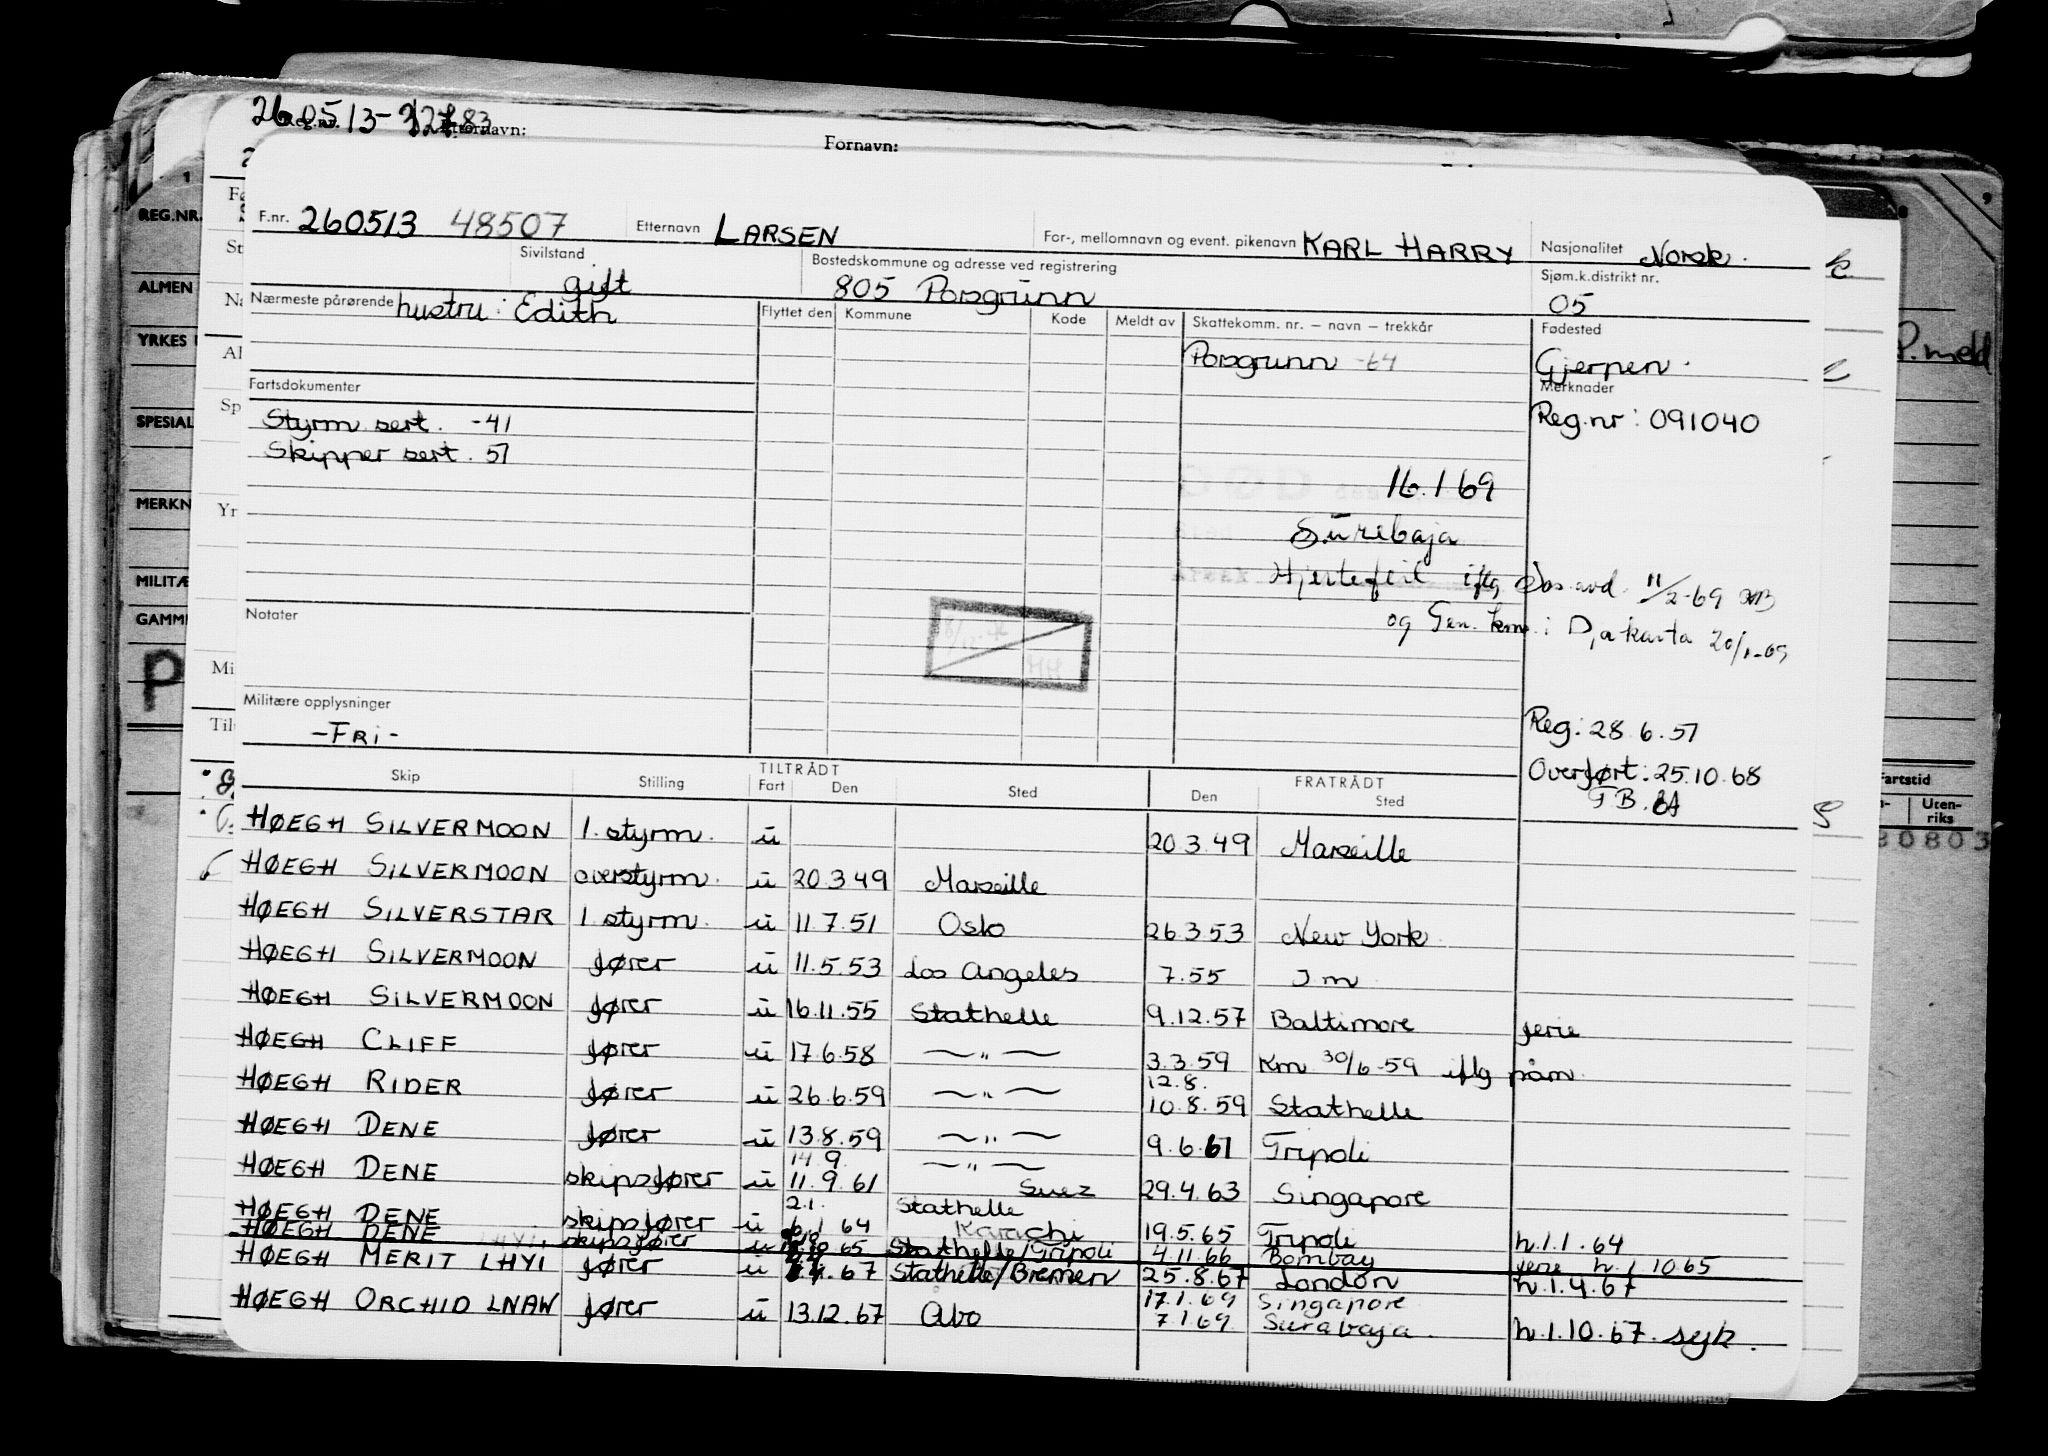 260513-
Reg.nr.
Etternavn:
Fornavn:
REG.NR.
ALMEN
YRKES
SPESIAL
MERKN
MILITÆ
GAMM
P
St
Al
Sp
Yr
Mi
P.meld
Fartstid
Uten-
riks
30803
F.nr. 260513 48507 Etternavn LARSEN For-, mellomnavn og event. pikenavn KARL HARRY Nasjonalitet Norsk.
Sivilstand gift Bostedskommune og adresse ved registrering 805 Porsgrunn Sjøm.k.distrikt nr. 05
Nærmeste pårørende hustru: Edith Flyttet den Kommune Kode Meldt av Skattekomm. nr. – navn – trekkår Fødested
Porsgrunn -64 Gjerpen.
Fartsdokumenter Merknader
Styrm sert. -41 Reg.nr: 091040
Skipper sert. 51
16.1 69
Surebaja
Hjertefeil iflg Sos.avd. 11/2-69
og Gen. kns. i Djakarta 20/1-69
Notater
Militære opplysninger
-FRI- Reg: 28.6.51
Overført: 25.10.68
Skip Stilling TILTRÅDT Fart Den Sted FRATRÅDT Den Sted
HØEGH SILVERMOON 1. styrm. u 20.3.49 Marseille
HØEGH SILVERMOON overstyrm. u 20.3 49 Marseille
HØEGH SILVERSTAR 1 styrm. u 11.7.51 Oslo 26.3.53 New York
HØEGH SILVERMOON fører u 11.5.53 Los Angeles 7.55 I m
HØEGH SILVERMOON fører u 16.11.55 Stathelle 9.12.57 Baltimore ferie
HØEGH CLIFF fører u 17.6.58 —"— 3.3.59 Km 30/6-59 iflg påm.
HØEGH RIDER fører u 26.6.59 —"— 12.8. 10.8.59 Stathelle
HØEGH DENE fører u 13.8.59 —"— 9.6.61 Tripoli
HØEGH DENE skipsfører u 14.9. 11.9.61 —"— Suez 29.4.63 Singapore
HØEGH DENE skipsfører u 2.1. 6.1 64 Stathelle Karachi 19.5.65 Tripoli h.1.1.64
HØEGH DENE skipsfører u 10 65 Stathelle/Tripoli 4.11.66 Bombay ferie h.1.10 65
HØEGH MERIT LHYI fører u 4.67 Stathelle/Bremen 25.8.67 London h.1.4.67
HØEGH ORCHID LNAW fører u 13.12.67 Abo 17.1.69 Singapore
7.1.69 Surabaja. h.1.10.67. syk.